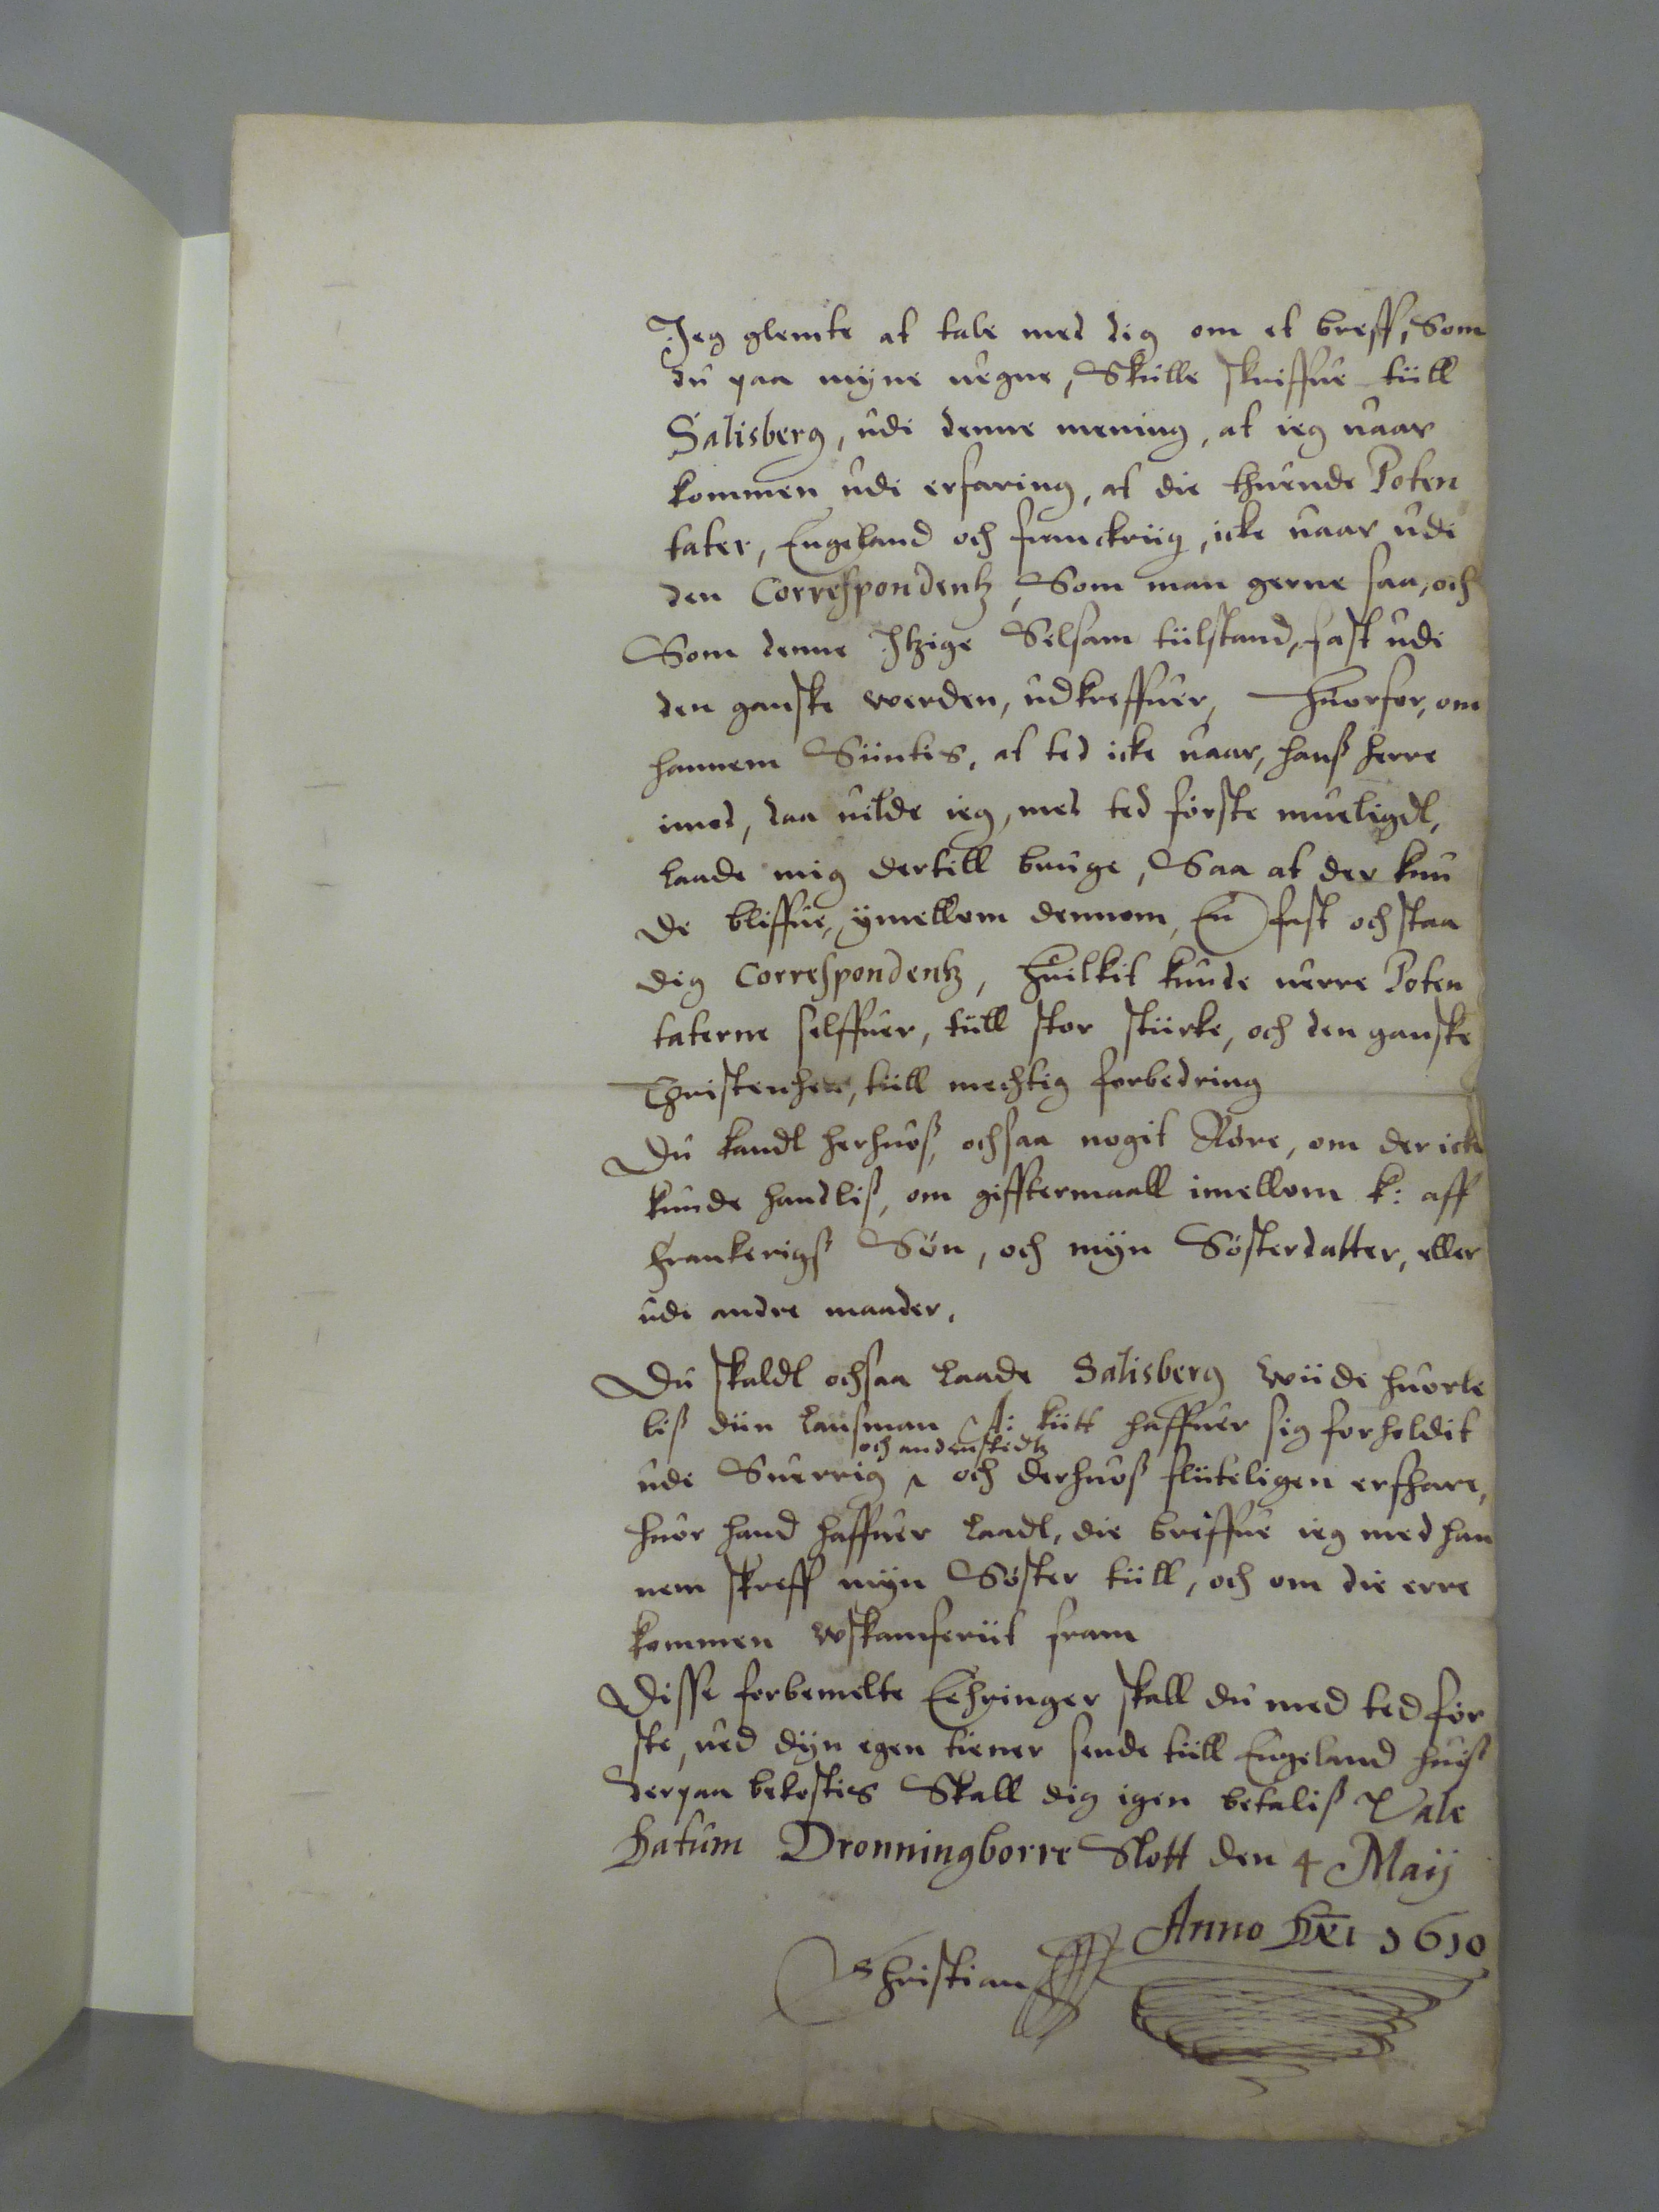 Jeg glemte at tale med dig om et breff, Som
du paa myne uegne, Skulle skriffue tüll
Salisberg, udi denne mening, at ieg uaar
kommen udi erfaring, at die thuende Poten
tater, Engeland och franckriig, icke uaar udi
den Correspondentz, Som man gerne saa, och
Som denne Itzige Selsam tülstand, fast udi
den ganske werden, udkreffuer, Huorfor, om
hannem Süntis, at ted icke uaar, hanß herre
imod, daa uilde ieg, med ted förste mueligdt,
laade mig dertill bruge, Saa at der kun
de bliffue, ÿmellom dennom, En fast och staa
dig Correspondentz, Huilkit kunde uerre Poten
taterne selffuer, tüll stor stürke, och den ganske
Christenhed, tüll mechtig forbedring
Du kandt herhuoß, ochsaa nogit Röre, om der icke
kunde handliß, om gifftermaall imellom k: aff
Frankerigß Sön, och mÿn Sösterdatter, eller
udi andre maader.
Du skaldt ochsaa laade Salisberg wüde huorle
liß dün lansman A: kütt haffuer sig forholdit
och andenstedtz
udi Suerrig och derhuoß flüteligen erfhare,
huor hand haffuer laadt, die breffue ieg med han
nem skreff mÿn Söster tüll, och om die erre
kommen wskamferüt fram
Disse forbemelte Ehringer skall du med ted för
ste, ued dÿn egen tiener sende tüll Engeland huiß
derpaa bekostis Skall dig igen betaliß Vale
Datum Dronningborre Slott den 4 Maij
Anno Dni 1610
Christian